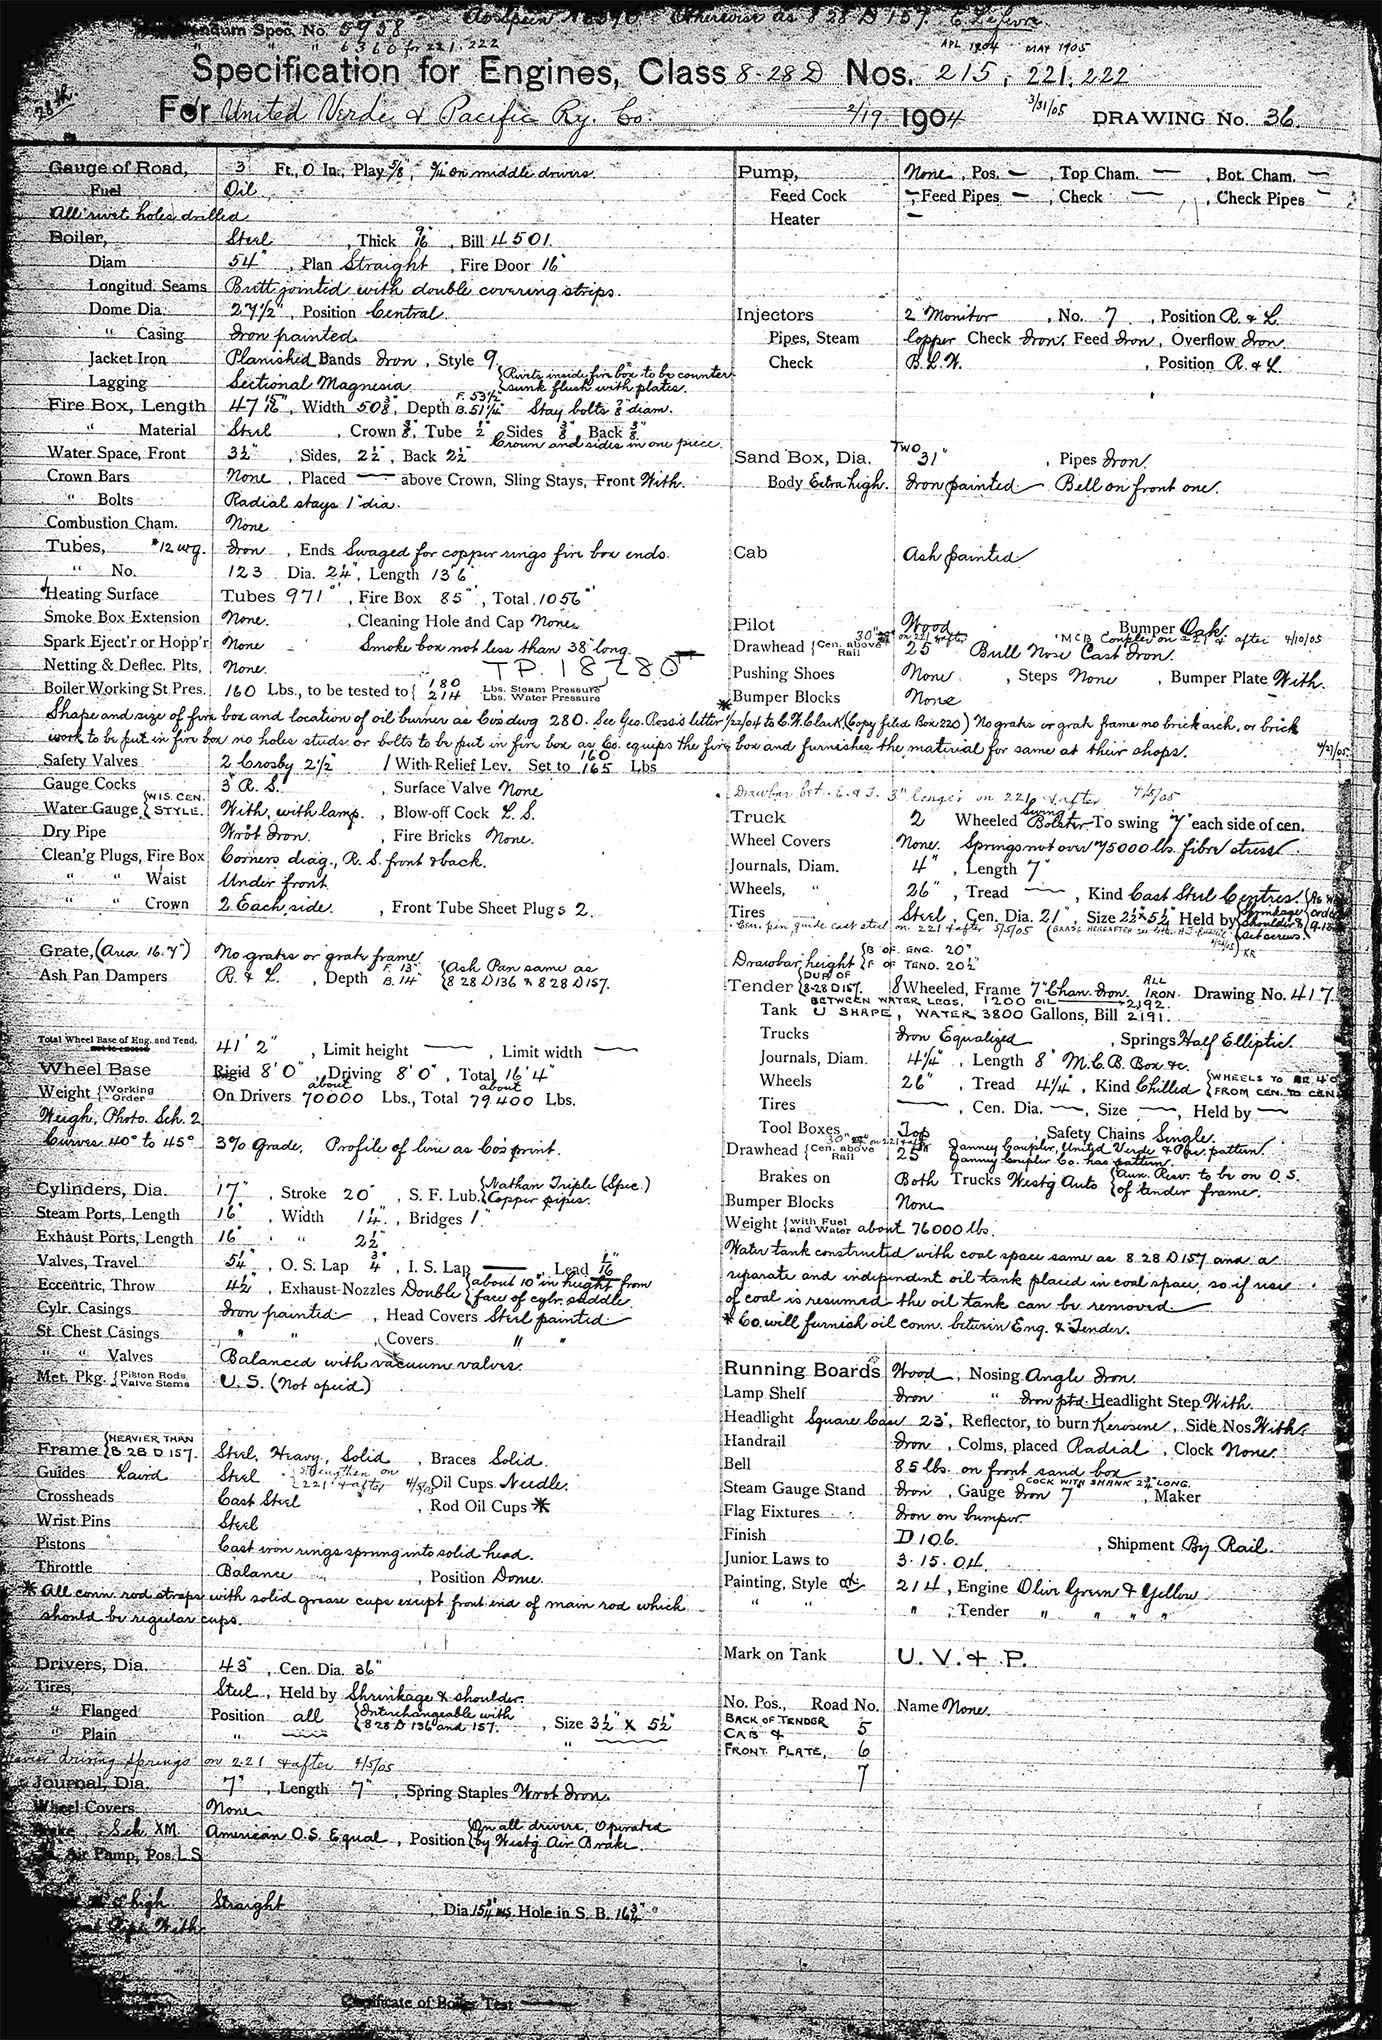 Spec. No. 5958 Otherwise as 8 28 D 157.
" " 6360 for 221. 222
APL 1904 MAY 1905
Specification for Engines, Class 8-28 D Nos. 215, 221. 222
28th.
For United Verde & Pacific Ry. Co. 2/19 1904 3/31/05 DRAWING No. 36.
Gauge of Road, 3 Ft, 0 In., Play 5/8", on middle drivers.
Fuel Oil
All rivet holes drilled
Boiler, Steel, Thick 9/16", Bill 4501.
Diam 54", Plan Straight, Fire Door 16"
Longitud. Seams Butt jointed with double covering strips.
Dome Dia. 27 1/2", Position Central.
" Casing Iron painted
Jacket Iron Planished Bands Iron, Style 9.
Lagging Sectional Magnesia {Rivets inside fire box to be counter sunk flush with plates.
Fire Box, Length 47 15/16", Width 50 3/8", Depth F. 53 1/2" B. 51 1/4" Stay bolts 7/8" diam.
" Material Steel, Crown 3/8", Tube 1/2" Sides 3/8" Back 3/8"
Crown and sides in one piece.
Water Space, Front 3 1/2", Sides, 2 1/2", Back 2 1/2"
Crown Bars None, Placed — above Crown, Sling Stays, Front With.
" Bolts Radial stays 1" dia.
Combustion Cham. None
Tubes, #12 wg. Iron, Ends Swaged for copper rings fire box ends.
" No. 123 Dia. 2 1/4", Length 13' 6"
Heating Surface Tubes 971 □', Fire Box 85 □', Total 1056 □'
Smoke Box Extension None., Cleaning Hole and Cap None
Spark Eject'r or Hopp'r None Smoke box not less than 38" long.
Netting & Deflec. Plts, None. T.P. 18,280
Boiler Working St. Pres. 160 Lbs., to be tested to { 180 Lbs. Steam Pressure 214 Lbs. Water Pressure
Shape and size of fire box and location of oil burner as Co's dwg 280. See Geo. Ross's letter 1/22/04 to C. W. Clark (Copy filed Box 220) No grates or grate frame no brick arch, or brick
work to be put in fire box no holes studs or bolts to be put in fire box as Co. equips the fire box and furnishes the material for same at their shops. 4/21/05
Safety Valves 2 Crosby 2 1/2" 1 With Relief Lev. Set to 160 165 Lbs
Gauge Cocks 3 R. S., Surface Valve None
Water Gauge {WIS. CEN. STYLE. With, with lamp., Blow-off Cock L. S.
Dry Pipe Wrot Iron, Fire Bricks None.
Clean'g Plugs, Fire Box Corners diag., R. S. front & back.
" " Waist Under front
" " Crown 2 Each side., Front Tube Sheet Plugs 2.
Grate, (Area 16.7') No grates or grate frame
Ash Pan Dampers R. & L., Depth F. 13" B. 14" {Ash Pan same as 8 28 D 136 & 8 28 D 157.
Total Wheel Base of Eng. and Tend. 41' 2", Limit height —, Limit width —
Wheel Base Rigid 8' 0", Driving 8' 0", Total 16' 4"
Weight {Working Order On Drivers about 70000 Lbs., Total about 79400 Lbs.
Weigh, Photo. Sch. 2.
Curves 40° to 45° 3% Grade. Profile of line as Co's print.
Cylinders, Dia. 17", Stroke 20", S. F. Lub. {Nathan Triple (Spec.) Copper pipes.
Steam Ports, Length 16", Width 1 1/4", Bridges 1"
Exhaust Ports, Length 16" " 2 1/2"
Valves, Travel 5 1/4", O. S. Lap 3/4", I. S. Lap —, Lead 1/16"
Eccentric, Throw 4 1/2", Exhaust Nozzles Double {about 10" in height from face of cylr. saddle
Cylr. Casings Iron painted, Head Covers Steel painted
St. Chest Casings " ", Covers " "
" " Valves Balanced with vacuum valves.
Met. Pkg. {Piston Rods Valve Stems U. S. (Not spec'd)
Frame {HEAVIER THAN 8 28 D 157. Steel, Heavy, Solid, Braces Solid.
Guides Laird Steel Strengthen on 221 & after 4/5/05 Oil Cups Needle.
Crossheads Cast Steel, Rod Oil Cups *
Wrist Pins Steel
Pistons Cast iron rings sprung into solid head.
Throttle Balance, Position Dome.
* All conn. rod straps with solid grease cups except front end of main rod which
should be regular cups.
Drivers, Dia. 43", Cen. Dia. 36"
Tires, Steel, Held by Shrinkage & shoulder.
" Flanged Position all {Interchangeable with 8 28 D 136 and 157., Size 3 1/2" X 5 1/2"
" Plain " — " —
driving springs on 221 & after 4/5/05
Journal, Dia. 7", Length 7", Spring Staples Wrot Iron.
Wheel Covers None
Brake, Sch. XM. American O. S. Equal, Position {On all drivers, Operated by Westg Air Brake.
Air Pump, Pos. L.S
high Straight, Dia 15 3/4" Hole in S. B. 16 3/4"
Pipe With
Certificate of Boiler Test —
Pump, None, Pos. —, Top Cham. —, Bot. Cham. —
Feed Cock —, Feed Pipes —, Check —, Check Pipes —
Heater —
Injectors 2 Monitor, No. 7, Position R. & L.
Pipes, Steam Copper Check Iron, Feed Iron, Overflow Iron
Check B. L. W., Position R. & L.
Sand Box, Dia. TWO 31", Pipes Iron.
Body Extra high. Iron painted — Bell on front one.
Cab Ash painted
Pilot Wood Bumper Oak
Drawhead {Cen. above Rail 30" on 221 & after 25" Bull Nose Cast Iron. M C B Coupler on 221 & after 4/10/05
Pushing Shoes None, Steps None, Bumper Plate With.
Bumper Blocks None
Drawbar bet. E. & T. 3" longer on 221 & after 4/5/05
Truck 2 Wheeled Swing Bolster To swing 7" each side of cen.
Wheel Covers None. Springs not over 75000 lbs. fibre stress
Journals, Diam. 4", Length 7"
Wheels, " 26", Tread —, Kind Cast Steel Centres.
Tires Steel, Cen. Dia. 21", Size 2 1/2" x 5 1/2" Held by {Shrinkage Shoulder & Set screws.
Cen. pin guide cast steel on 221 & after 5/5/05
Drawbar height {B OF. ENG. 20" F OF TEND. 20 1/2"
Tender {DUP. OF 8-28 D 157. 8 Wheeled, Frame 7" Chan. Iron. ALL IRON. Drawing No. 417.
Tank BETWEEN WATER LEGS, 1200 OIL — 2192. U SHAPE, WATER 3800 Gallons, Bill 2191.
Trucks Iron Equalized, Springs Half Elliptic.
Journals, Diam. 4 1/4", Length 8" M.C.B. Box &c.
Wheels 26", Tread 4 1/4", Kind Chilled {WHEELS TO BE 4' 0" FROM CEN. TO CEN.
Tires —, Cen. Dia. —, Size —, Held by —
Tool Boxes Top Safety Chains Single.
Drawhead {Cen. above Rail 30" on 221 & aft 25" Janney Coupler, United Verde & Pac. pattern. Janney Coupler Co. has pattern.
Brakes on Both Trucks Westg Auto {Aux. Resr. to be on O. S. of tender frame.
Bumper Blocks None
Weight {with Fuel and Water about 76000 lbs.
Water tank constructed with coal space same as 8 28 D 157 and a
separate and independent oil tank placed in coal space, so if use
of coal is resumed the oil tank can be removed.
* Co. will furnish oil conn. between Eng. & Tender.
Running Boards Wood, Nosing Angle Iron.
Lamp Shelf Iron " Iron ptd. Headlight Step With
Headlight Square Case 23", Reflector, to burn Kerosene, Side Nos With.
Handrail Iron, Colms, placed Radial, Clock None
Bell 85 lbs. on front sand box
Steam Gauge Stand Iron, Gauge Iron 7 COCK WITH SHANK 2 3/4" LONG., Maker
Flag Fixtures Iron on bumper
Finish D 106., Shipment By Rail.
Junior Laws to 3. 15. 04.
Painting, Style 214, Engine Olive Green & Yellow
" " ", Tender " " " "
Mark on Tank U. V. & P.
No. Pos., Road No. Name None
BACK OF TENDER 5
CAB &
FRONT PLATE, 6
7